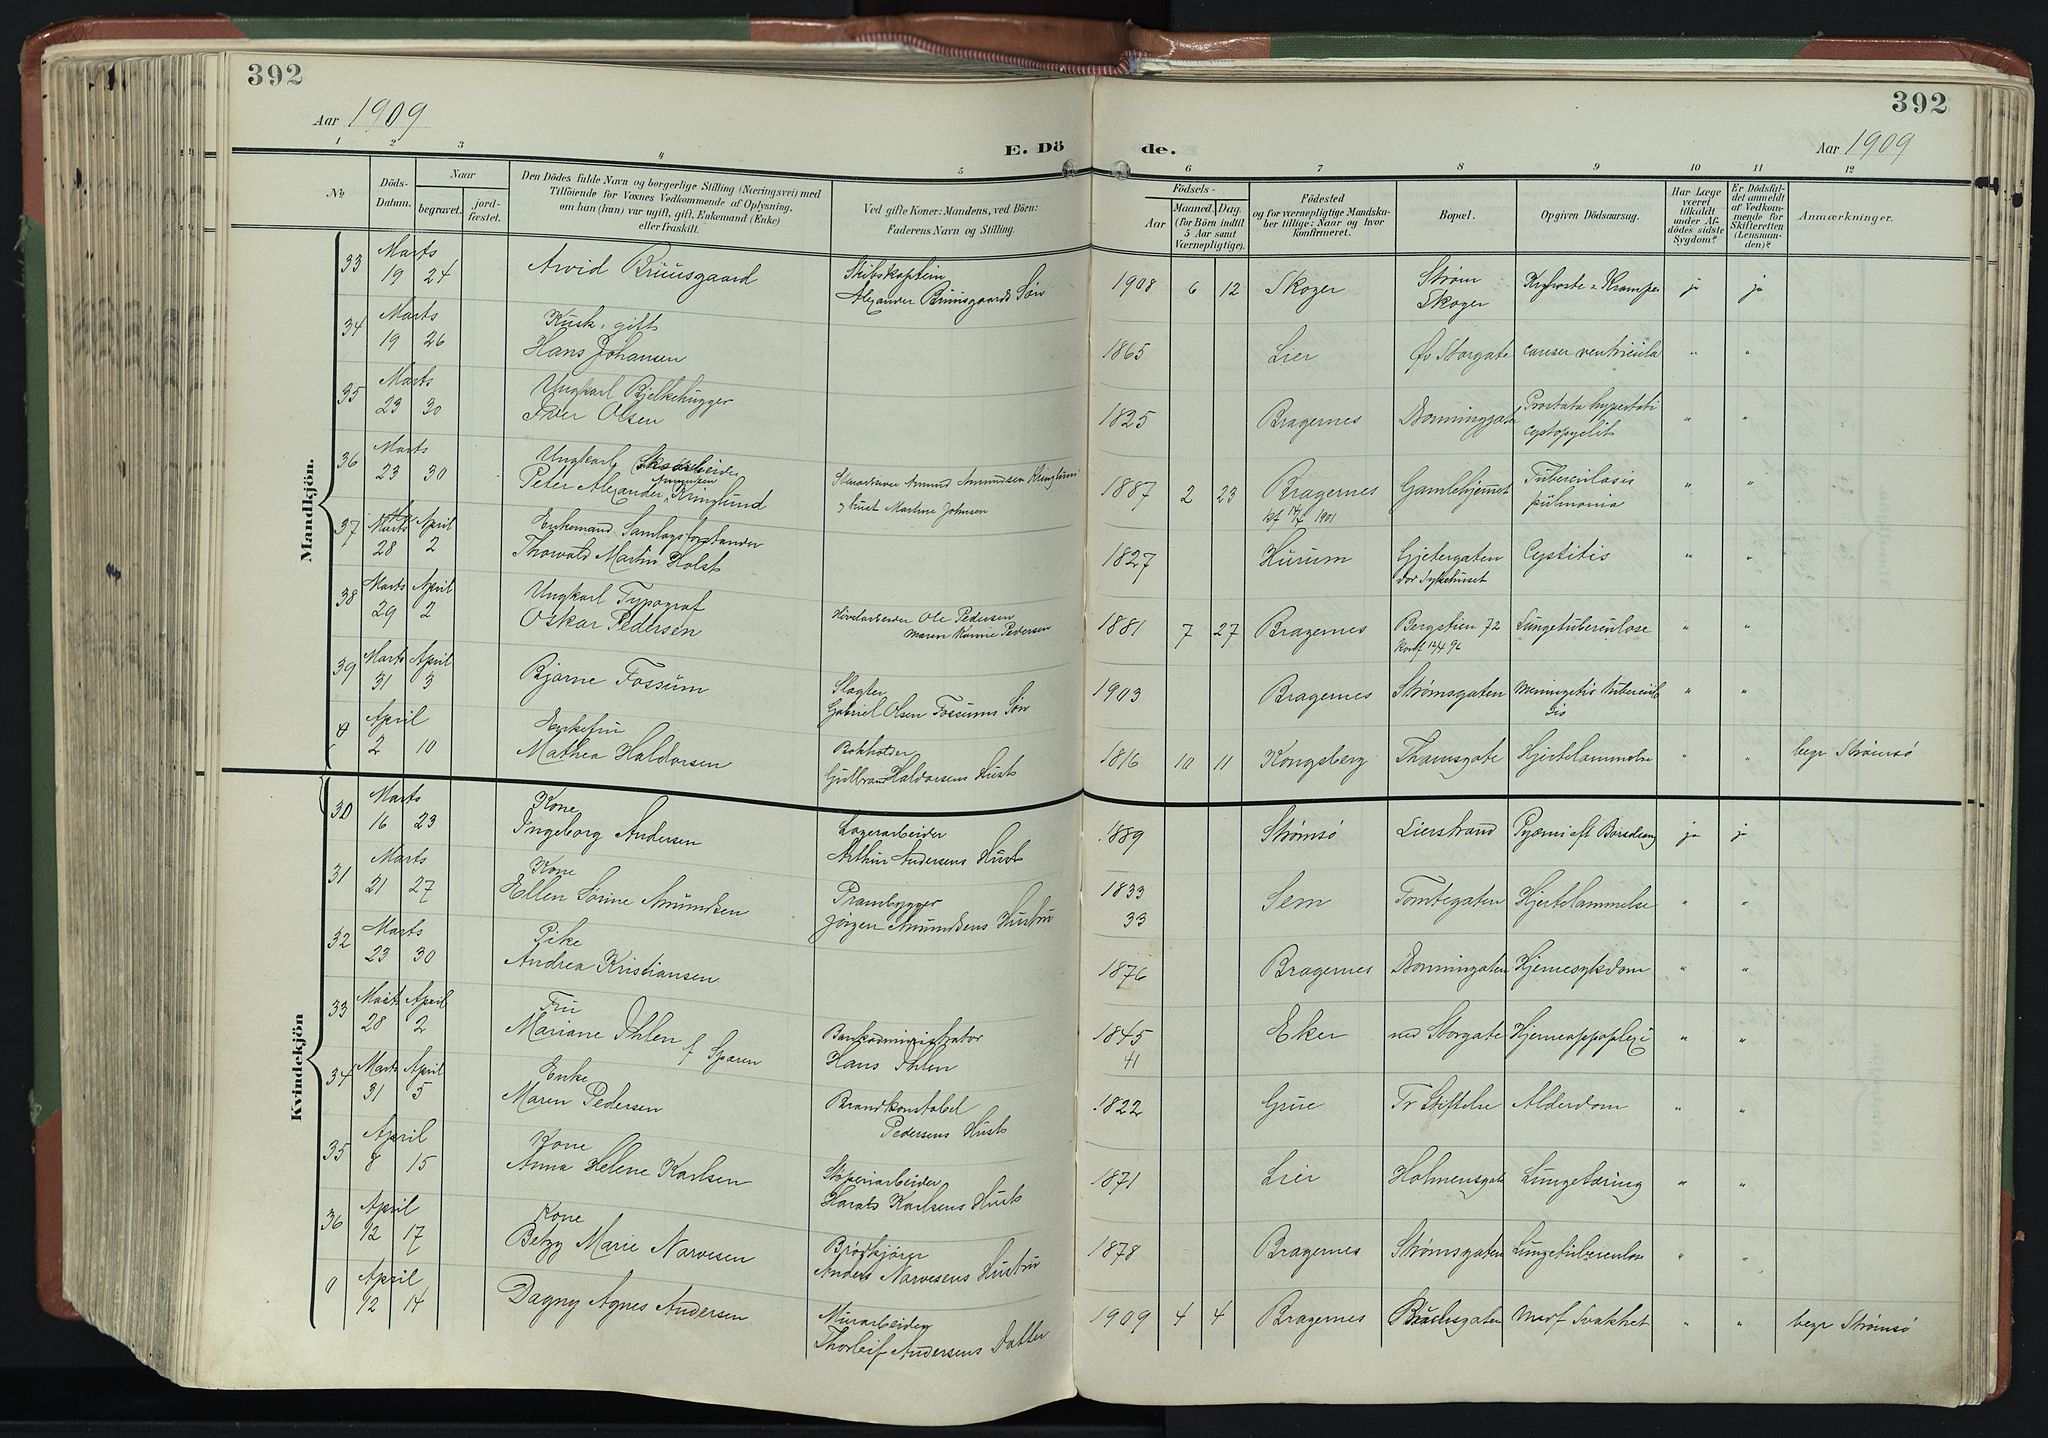 392
392
Aar 1909
Aar 1909
E. Dö de.
1 2 3 4 5 6 7 8 9 10 11 12
No
Döds-Datum.
Naar
begravet. jord-fæstet.
Den Dödes fulde Navn og borgerlige Stilling (Næringsvei) med
Tilföiende for Voxnes Vedkommende af Oplysning,
om han (hun) var ugift, gift, Enkemand (Enke)
eller fraskilt.
Ved gifte Koner: Mandens, ved Börn:
Faderens Navn og Stilling.
Födsels-
Aar Maaned. Dag.
(for Börn indtil
5 Aar samt
Værnepligtige).
Födested
og for værnepligtige Mandska-
ber tillige: Naar og hvor
konfirmeret.
Bopæl.
Opgiven Dödsaarsag.
Har Læge
været
tilkaldt
under Af-
dödes sidste
Sygdom?
Er Dödsfal-
det anmeldt
af Vedkom-
mende for
Skifteretten
(Lensman-
den)?
Anmærkninger.
Mandkjön.
33 Marts 19 24 Arvid Bruusgaard Skibskaptein
Alexander Bruusgaards Søn 1908 6 12 Skoger Strøm
Skoger Kighoste = Krampe ja ja
34 Marts 19 26 Kusk, gift
Hans Johansen 1865 Lier Øv Storgate cancer ventricula " "
35 Marts 23 30 Ungkarl Bjelkehugger
Iver Olsen 1825 Bragernes Dronninggaten Prostata hypertrofi
cystopyelit " "
36 Marts 23 30 Ungkarl Skoarbeider
Peter Alexander Amundsen Kringlund Amund Amundsen Kringlund
og Hust Martine Johnsen 1887 2 23 Bragernes
kf 1901 Gamlehjemmet Tuberculosis
pulmonia " "
37 Marts 28 April 2 Enkemand Samlagsforstander
Thorvald Martin Holst 1827 Hurum Gjetergaten
Sykehuset Cystitis " "
38 Marts 29 April 2 Ungkarl Typograf
Oskar Pedersen Høvelarbeider Ole Pedersen
Maren Kannie Pedersen 1881 7 27 Bragernes Bergstien 72
Konf 12/4 96 Lungetuberculose " "
39 Marts 31 April 3 Bjarne Fossum Slagter
Gabriel Olsen Fossums Søn 1903 Bragernes Strømsgaten Meningetis tubercul
sis " "
April 2 10 Enkefru
Mathea Haldorsen Bokholder
Gulbrand Haldorsens Hust 1816 10 11 Kongsberg Thamsgate Hjertelammelse " " begr Strømsø
Kvindekjön
30 Marts 16 23 Kone
Ingeborg Andersen Lagerarbeider
Arthur Andersens Hust 1889 Strømsø Lierstrand Pyæmi eft Barselseng ja ja
31 Marts 21 27 Kone
Ellen Sørine Amundsen Prambygger
Jørgen Amundsens Hustru 1833
33 Sem Tomtegaten Hjertelammelse " "
32 Marts 23 30 Pike
Andrea Kristiansen 1876 Bragernes Dronningaten Hjernesykdom " "
33 Marts 28 April 2 Fru
Mariane Ihlen f Sparen Bankadministrator
Hans Ihlen 1845
41 Eker ned Storgate Hjerneappoplexi " "
34 Marts 31 April 5 Enke
Maren Pedersen Brandkonstabel
Pedersens Hust 1822 Grue Tr Stiftelse Alderdom " "
35 April 8 15 Kone
Anna Helene Karlsen Støperiarbeider
Karlsens Hust 1871 Lier Holmensgate Lungetæring " "
36 April 12 17 Kone
Betzy Marie Narvesen Brødkjører
Anders Narvesens Hustru 1878 Bragernes Strømsgaten Lungetuberculose " "
April 12 14 Dagny Agnes Andersen Murarbeider
Thorleif Andersens Datter 1909 4 4 Bragernes Medf Svakhet " " begr Strømsø